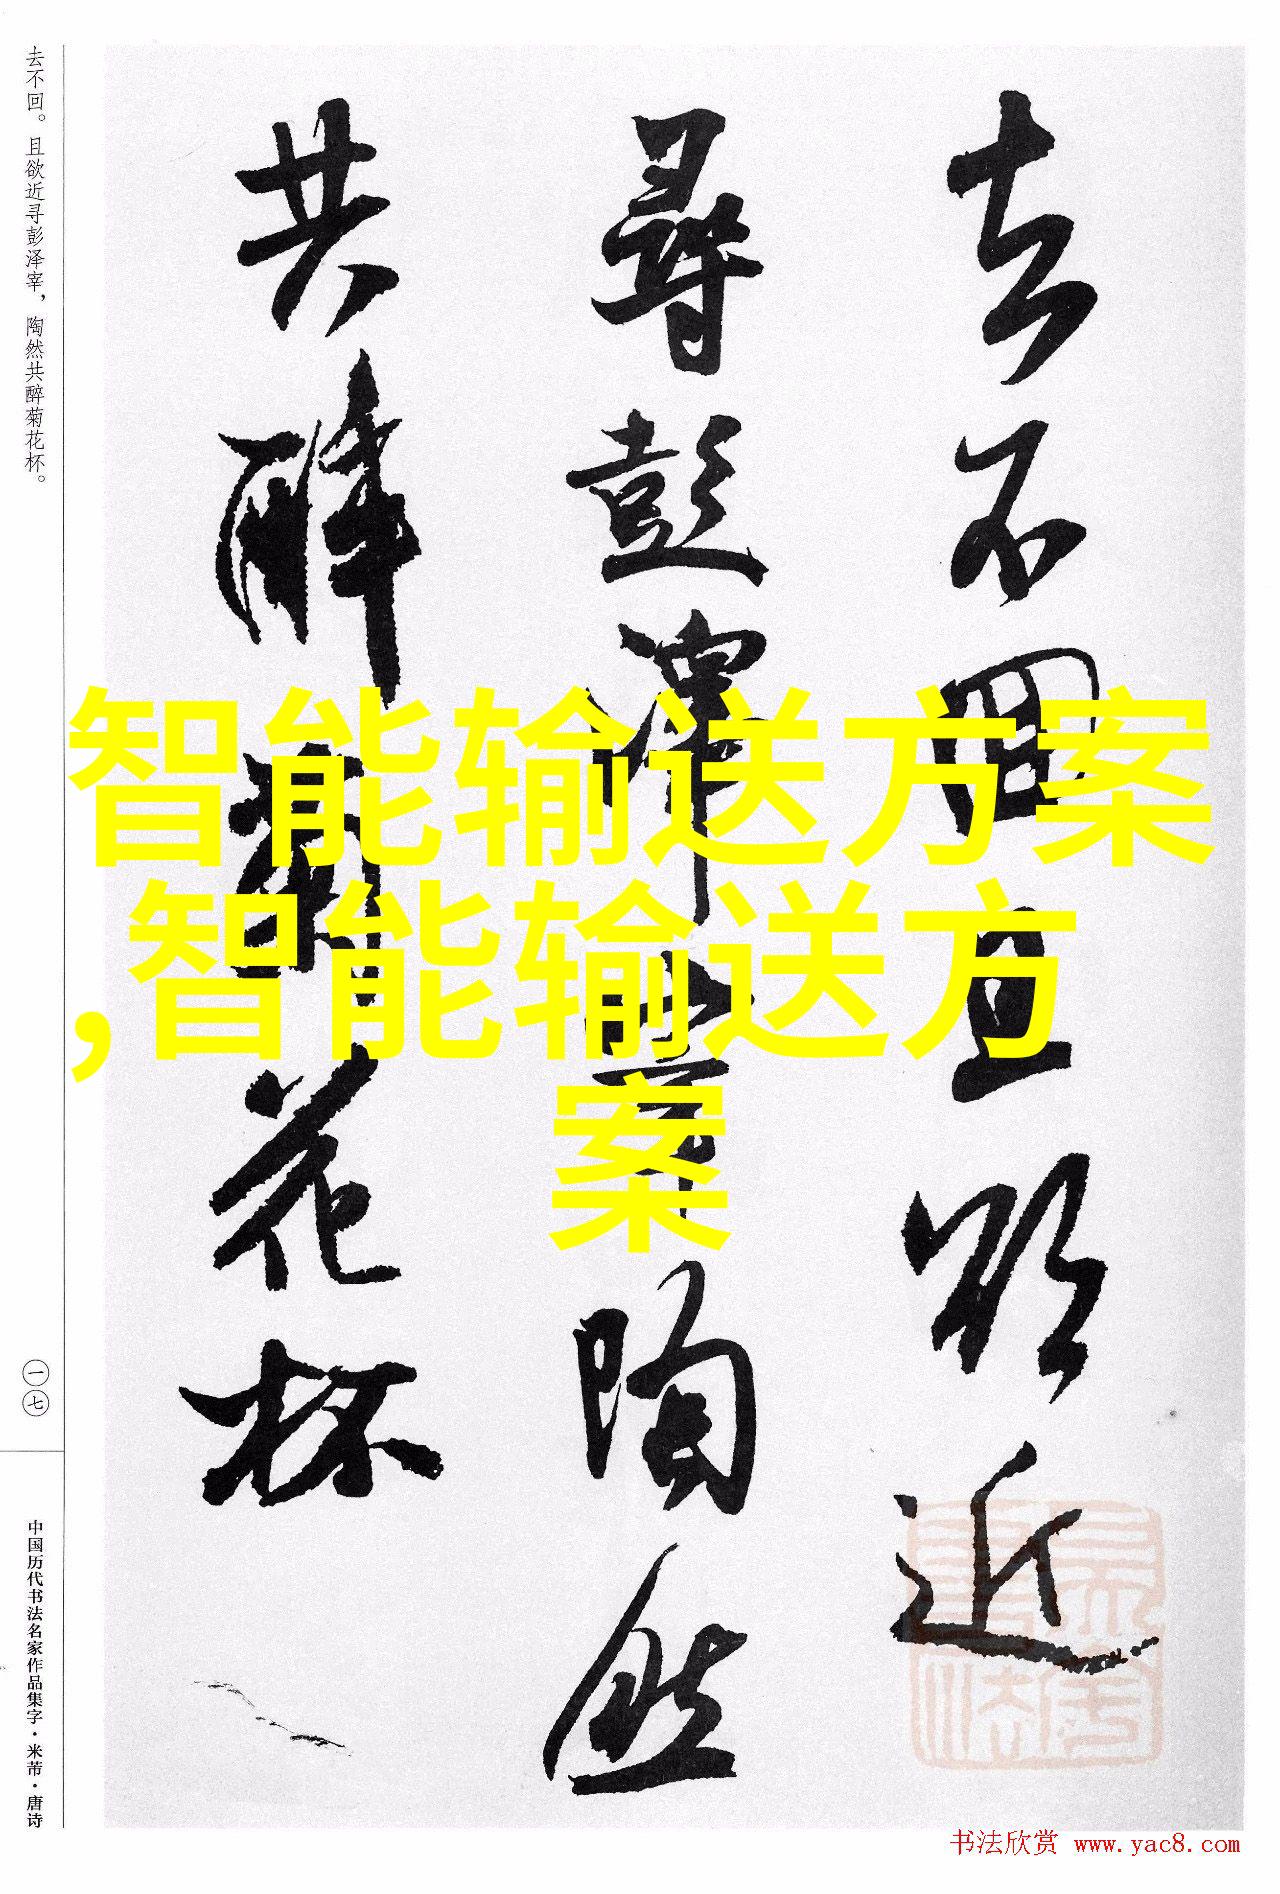 去不回且欲近
尋彭澤宰陶然
共醉菊花杯
去不回。且欲近寻彭泽宰，陶然共醉菊花杯。
一七
中国历代书法名家作品集字·米芾·唐诗
智能输送方案
,智能输送方
案
书法欣赏 www.yac8.com